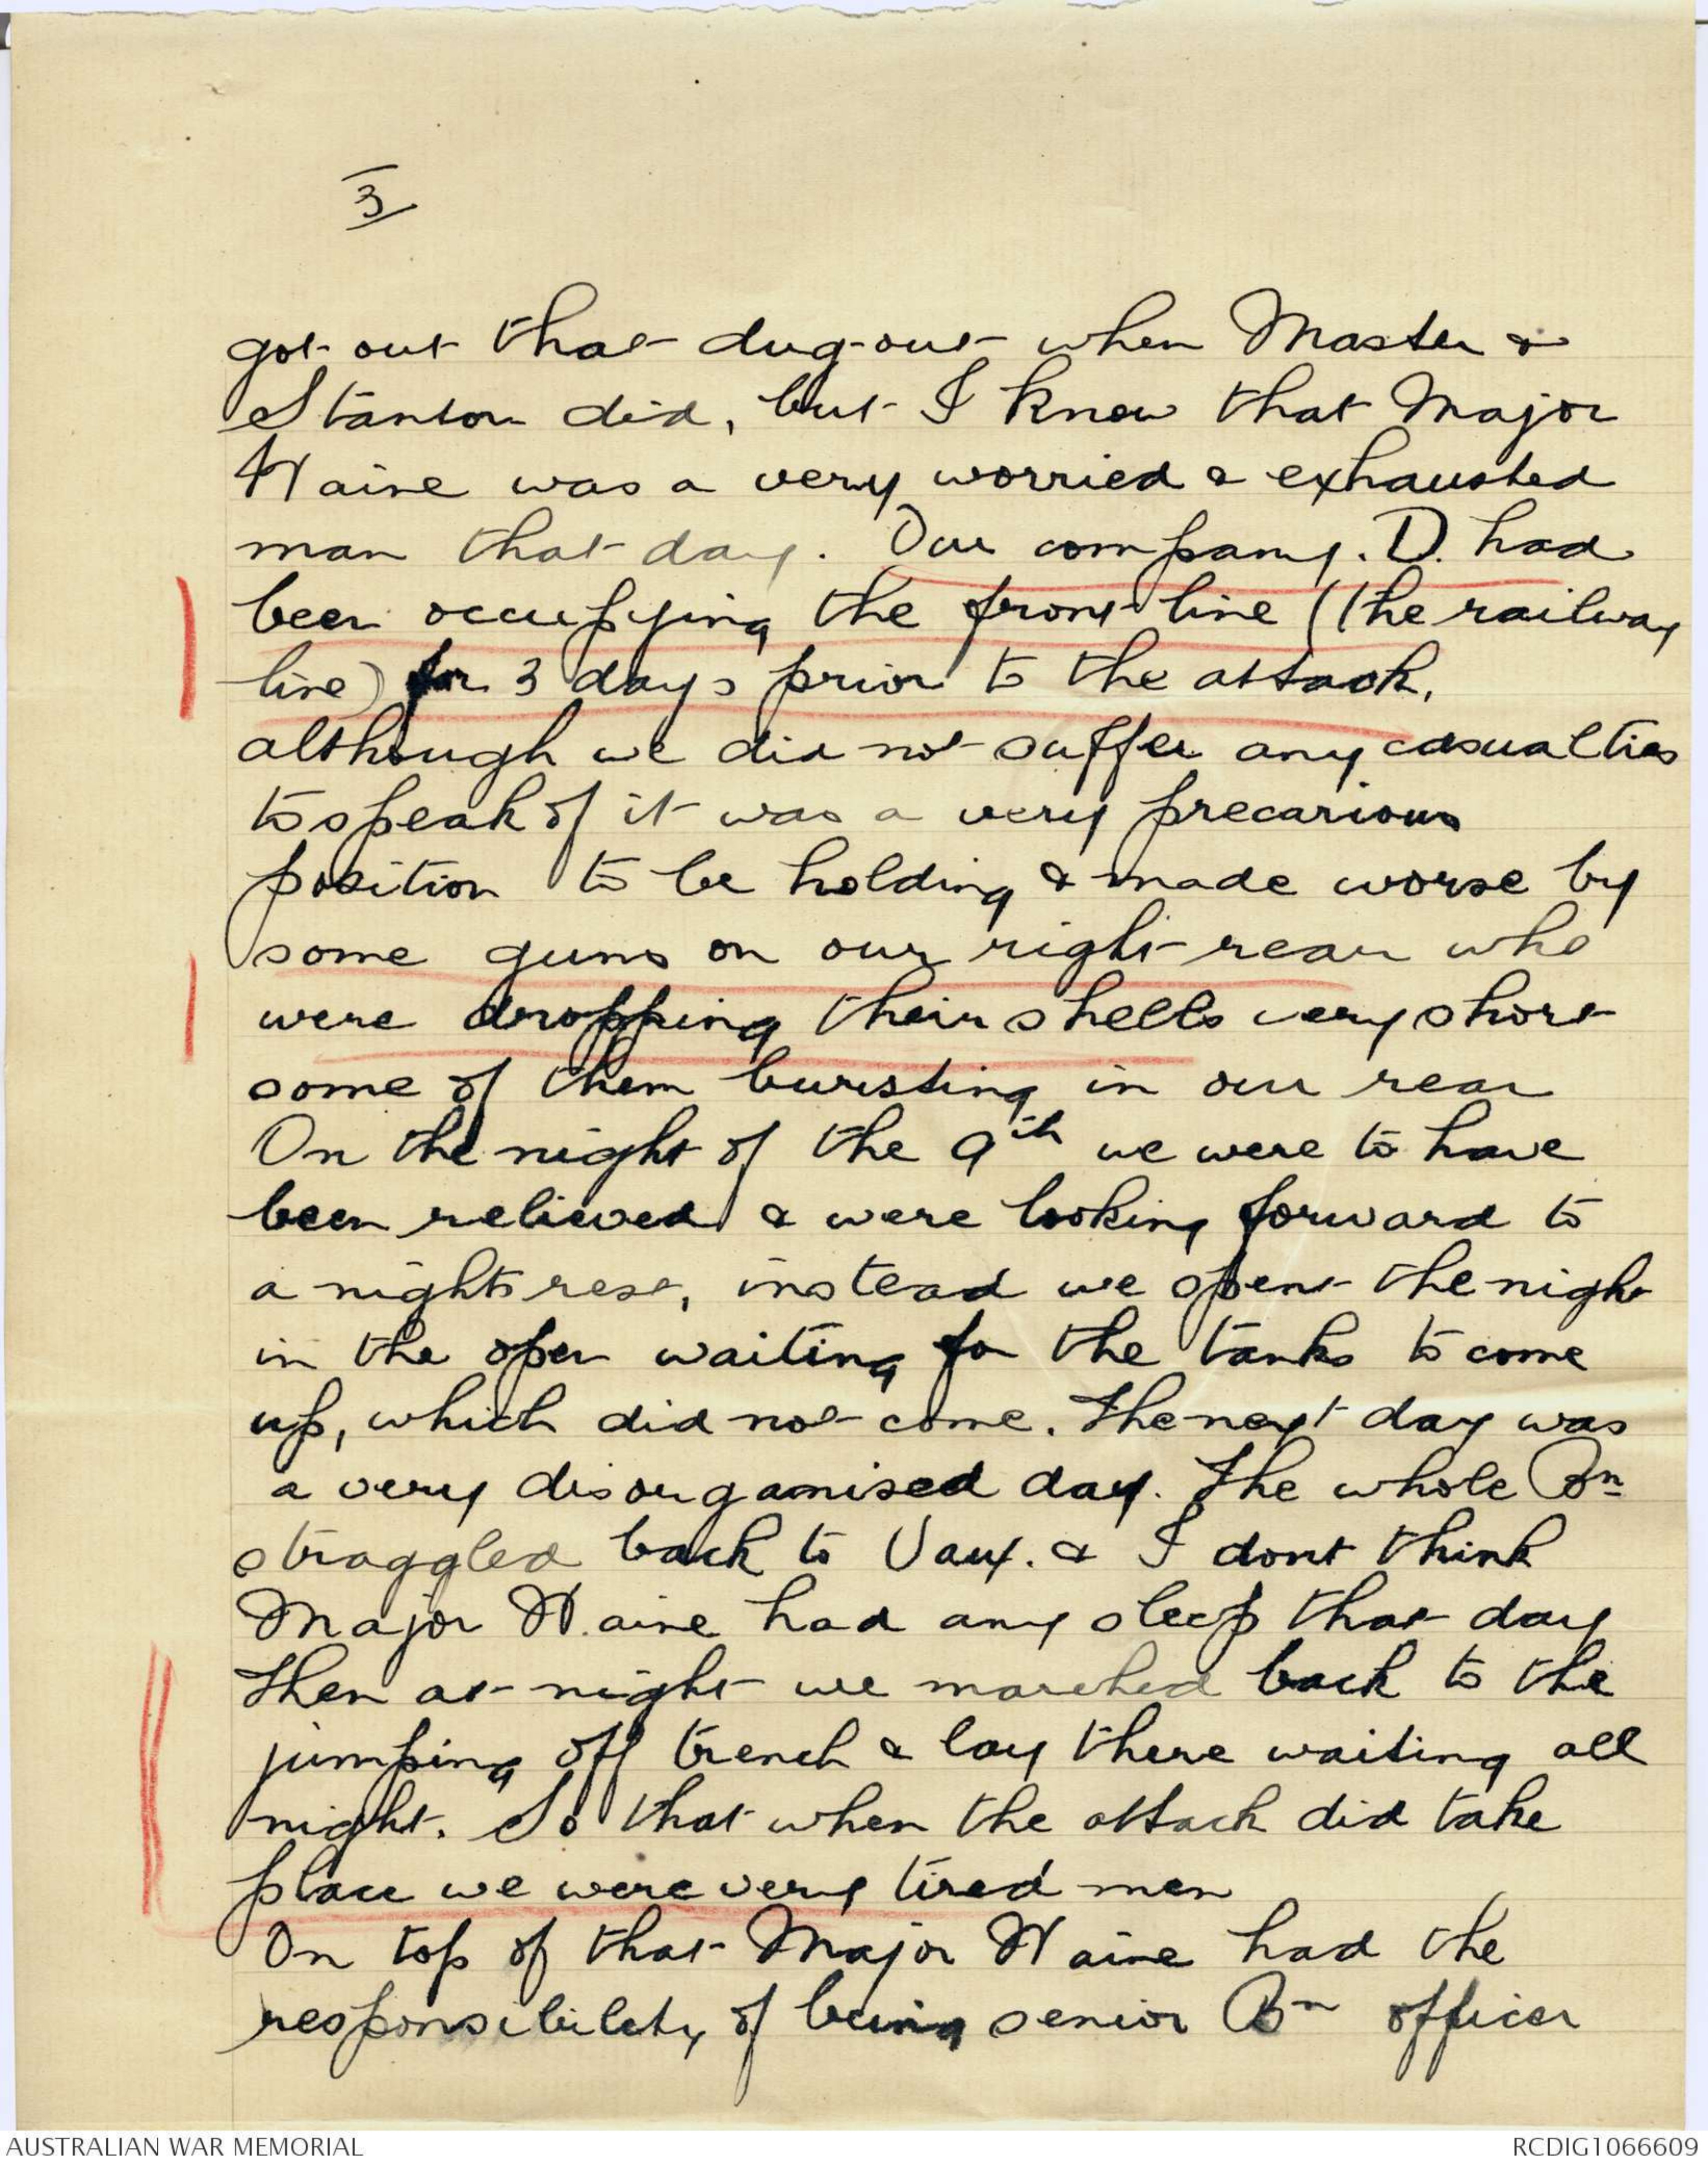 3
got out that dug-out when Master &
Stanton did, but I know that Major
Waine was a very worried & exhausted
man that day. Our company. D. had
been occupying the front line (the railway
line) for 3 days prior to the attack,
although we did not suffer any casualties
to speak of it was a very precarious
position to be holding & made worse by
some guns on our right rear who
were dropping their shells very short
some of them bursting in our rear
On the night of the 9th we were to have
been relieved & were looking forward to
a nights rest, instead we spent the night
in the open waiting for the tanks to come
up, which did not come. The next day was
a very disorganised day. The whole Bn
straggled back to Vaux. & I dont think
Major Waine had any sleep that day
Then at night we marched back to the
jumping off trench & lay there waiting all
night. So that when the attack did take
place we were very tired men
On top of that Major Waine had the
responsibility of being senior Bn officer
AUSTRALIAN WAR MEMORIAL
RCDIG1066609